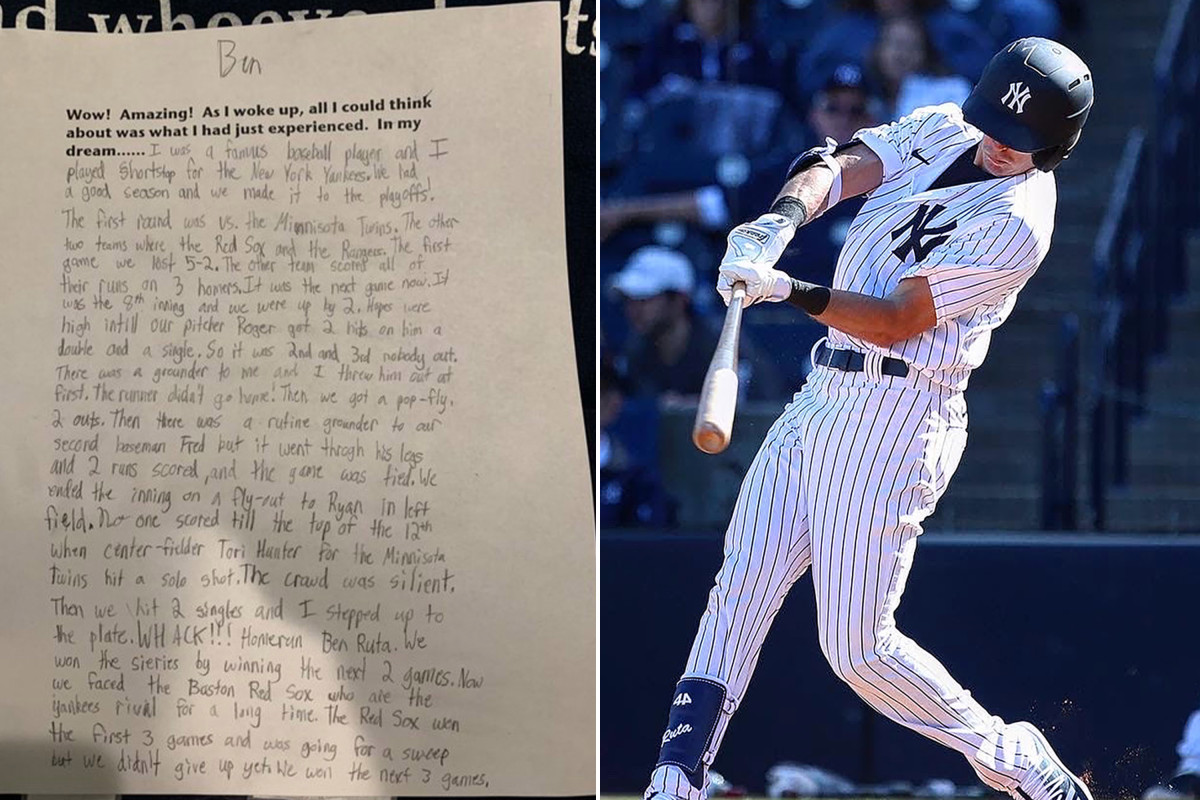 Ben
Wow! Amazing! As I woke up, all I could think
about was what I had just experienced. In my
dream...... I was a famus baseball player and I
played shortstop for the New York Yankees. We had
a good season and we made it to the playoffs!
The first round was vs. the Minnisota Twins. The other
two teams where the Red Sox and the Rangers. The first
game we lost 5-2. The other team scored all of
their runs on 3 homers. It was the next game now. It
was the 8th inning and we were up by 2. Hopes were
high intill our pitcher Roger got 2 hits on him a
double and a single. So it was 2nd and 3rd nobody out.
There was a grounder to me and I threw him out at
first. The runner didn't go home! Then we got a pop-fly.
2 outs. Then there was a rutine grounder to our
second baseman Fred but it went throgh his legs
and 2 runs scored, and the game was tied. We
ended the inning on a fly-out to Ryan in left
field. No one scored till the top of the 12th
when center-fielder Tori Hunter for the Minnisota
Twins hit a solo shot. The crawd was silient.
Then we hit 2 singles and I stepped up to
the plate. WHACK!!! Homerun Ben Ruta. We
won the sieries by winning the next 2 games. Now
we faced the Baston Red Sox who are the
Yankees rival for a long time. The Red Sox won
the first 3 games and was going for a sweep
but we didn't give up yet. We won the next 3 games.
NY
NY
44
Ruta